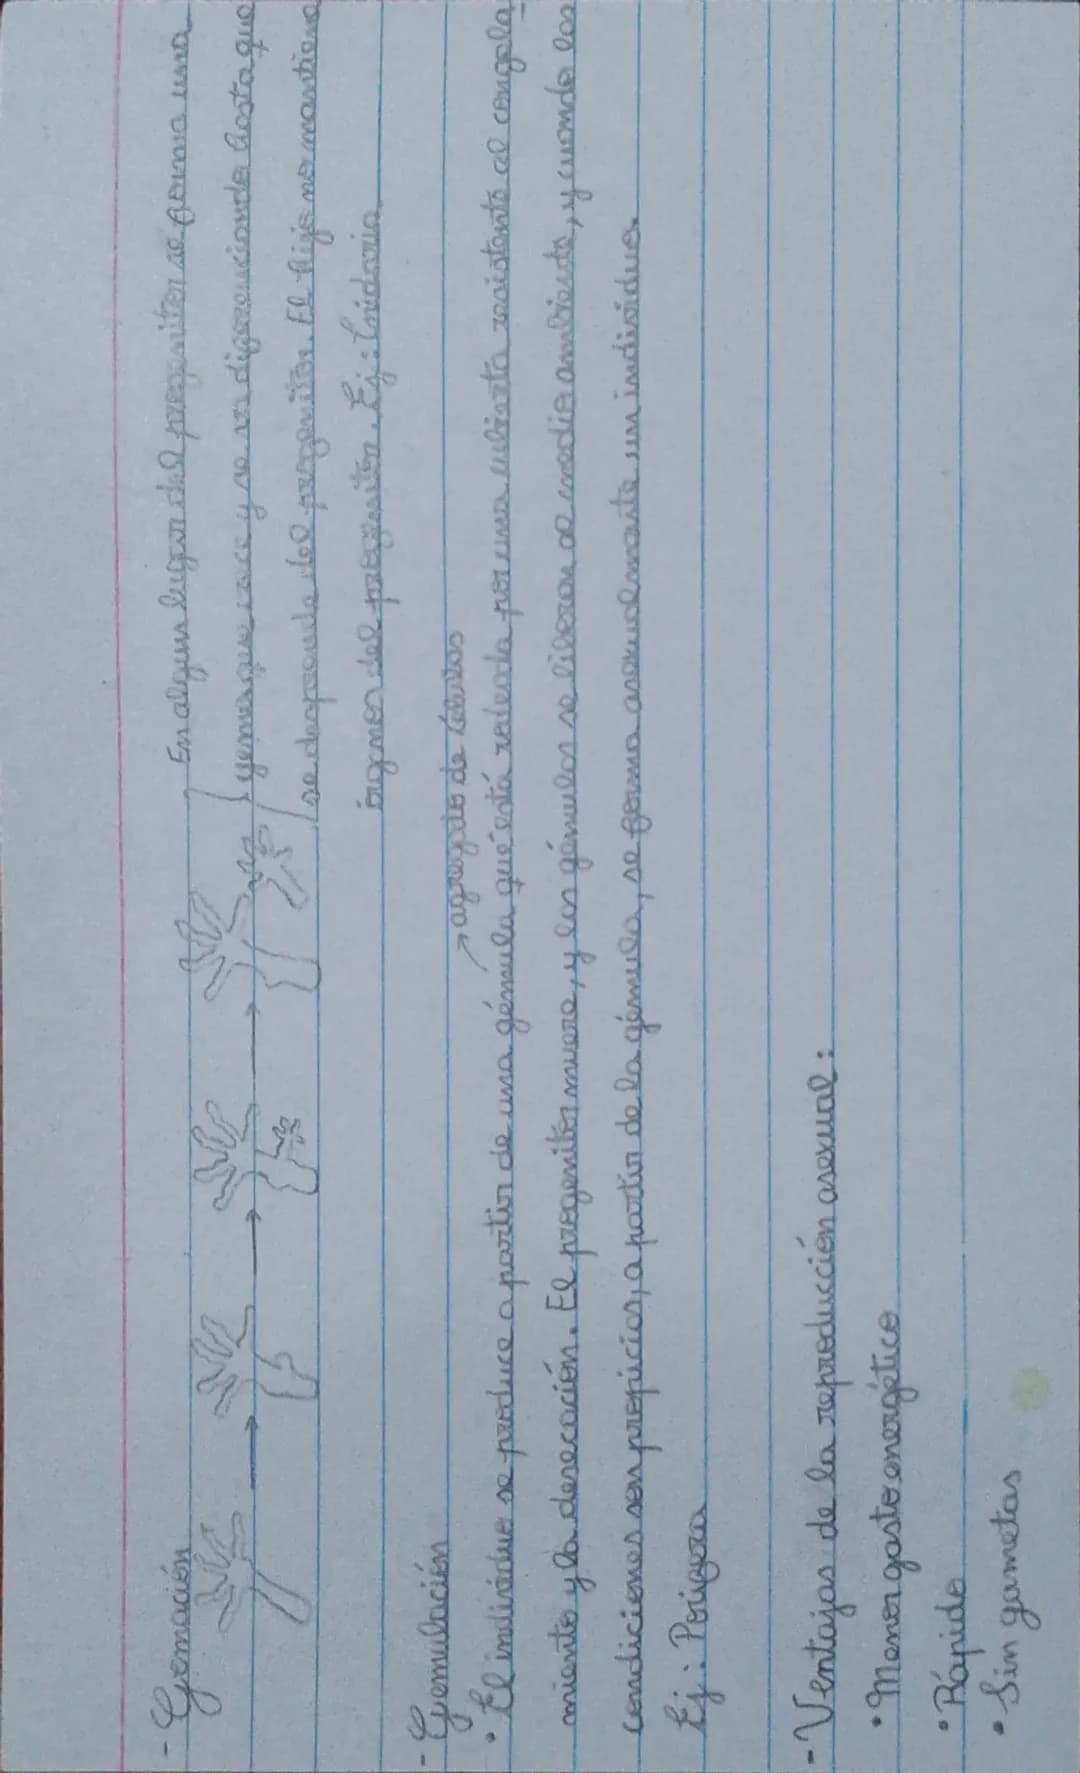 - Gemación
En algun lugar del progenitor se forma una
yema que crece y se va diferenciando hasta que
se desprende del progenitor. El hijo no mantiene
órganos del progenitor. Ej: Cnidario
- Gemulación
→ agregado de células
• El individuo se produce a partir de una gémula que está rodeada por una cubierta resistente al congela
miento y la desecación. El progenitor muere, y las gémulas se liberan al medio ambiente, y cuando las
condiciones son propicias, a partir de la gémula, se forma asexualmente un individuo.
Ej: Porifera
- Ventajas de la reproducción asexual:
• Menor gasto energético
• Rápido
• Sin gametas